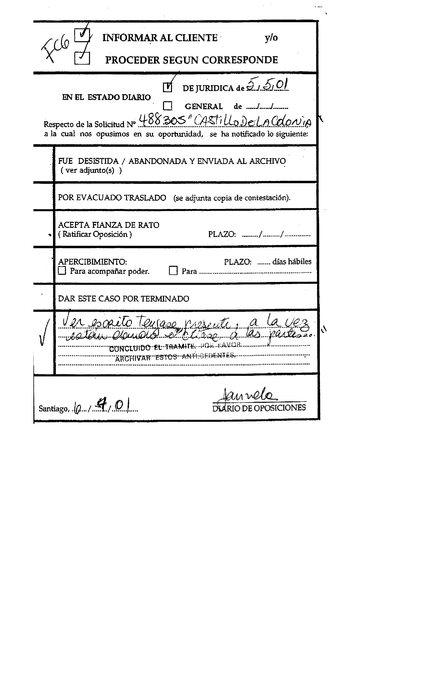 INFORMAR AL CLIENTE y/o
PROCEDER SEGUN CORRESPONDE
EN EL ESTADO DIARIO
DE JURIDICA de 5,5,01
GENERAL de ..../..../........
Respecto de la Solicitud Nº 488305 "CASTILLO DE LA COLONIA"
a la cual nos opusimos en su oportunidad, se ha notificado lo siguiente:
FUE DESISTIDA / ABANDONADA Y ENVIADA AL ARCHIVO
( ver adjunto(s) )
POR EVACUADO TRASLADO (se adjunta copia de contestación).
ACEPTA FIANZA DE RATO
( Ratificar Oposición ) PLAZO: ......../......./..............
APERCIBIMIENTO: PLAZO: ....... días hábiles
Para acompañar poder. Para ........................................
DAR ESTE CASO POR TERMINADO
Ver escrito Tengase presente, a la vez
a las partes
CONCLUIDO EL TRAMITE, POR FAVOR
ARCHIVAR ESTOS ANTECEDENTES.
Santiago, 10/4/01
DIARIO DE OPOSICIONES